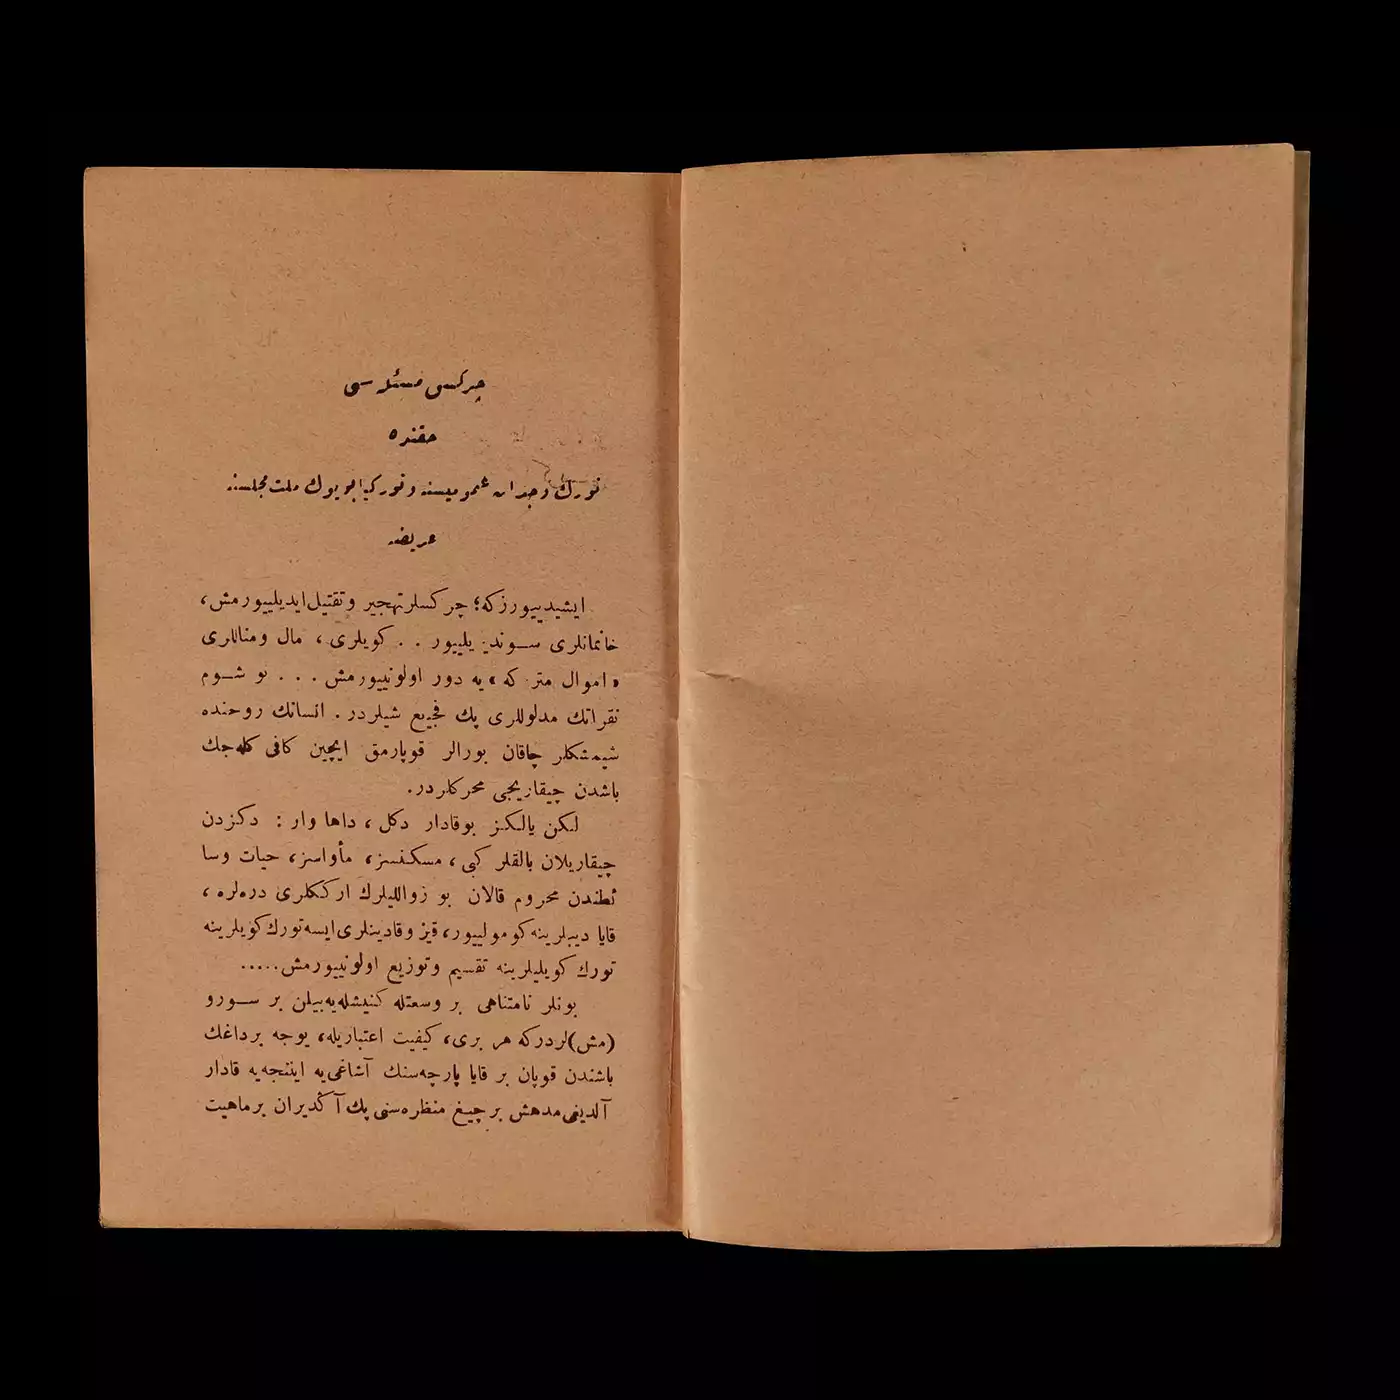 چركس مسئله سی
حقنده
تورك وجدان عموميسنه وتوركيا بويوك ملت مجلسنه
عريضه
ايشيدييورزكه؛ چركسلر تهجير وتقتيل ايديلييورمش،
خانمانلری سوندیریلییور . . كويلری ، مال ومناللری
«اموال متروكه» يه دور اولونييورمش . . . بو شوم
نقراتك مدلوللری پك فجيع شيلردر . انسانك روحنده
شيمشكلر چاقان بورالر قوپارمق ايچين كافی كله جك
باشدن چيقاريجی محركلردر.
لكن يالكز بوقادار دكل ، داها وار : دكزدن
چيقاريلان بالقلر كبی ، مسكنسز، مأواسز، حيات وسا
ئطندن محروم قالان بو زواللیلرك ارككلری دره لره ،
قايا ديبلرينه كومولييور، قيز وقادينلری ايسه تورك كويلرينه
تورك كويليلرينه تقسيم وتوزيع اولونييورمش.....
بونلر نامتناهی بر وسعتله كنيشله يه بيلن بر سورو
(مش)لردركه هر بری، كيفيت اعتباريله، يوجه برداغك
باشندن قوپان بر قايا پارچه سنك آشاغی يه اينتجه يه قادار
آلدیغی مدهش برچيغ منظره سنی پك آكديران برماهيت